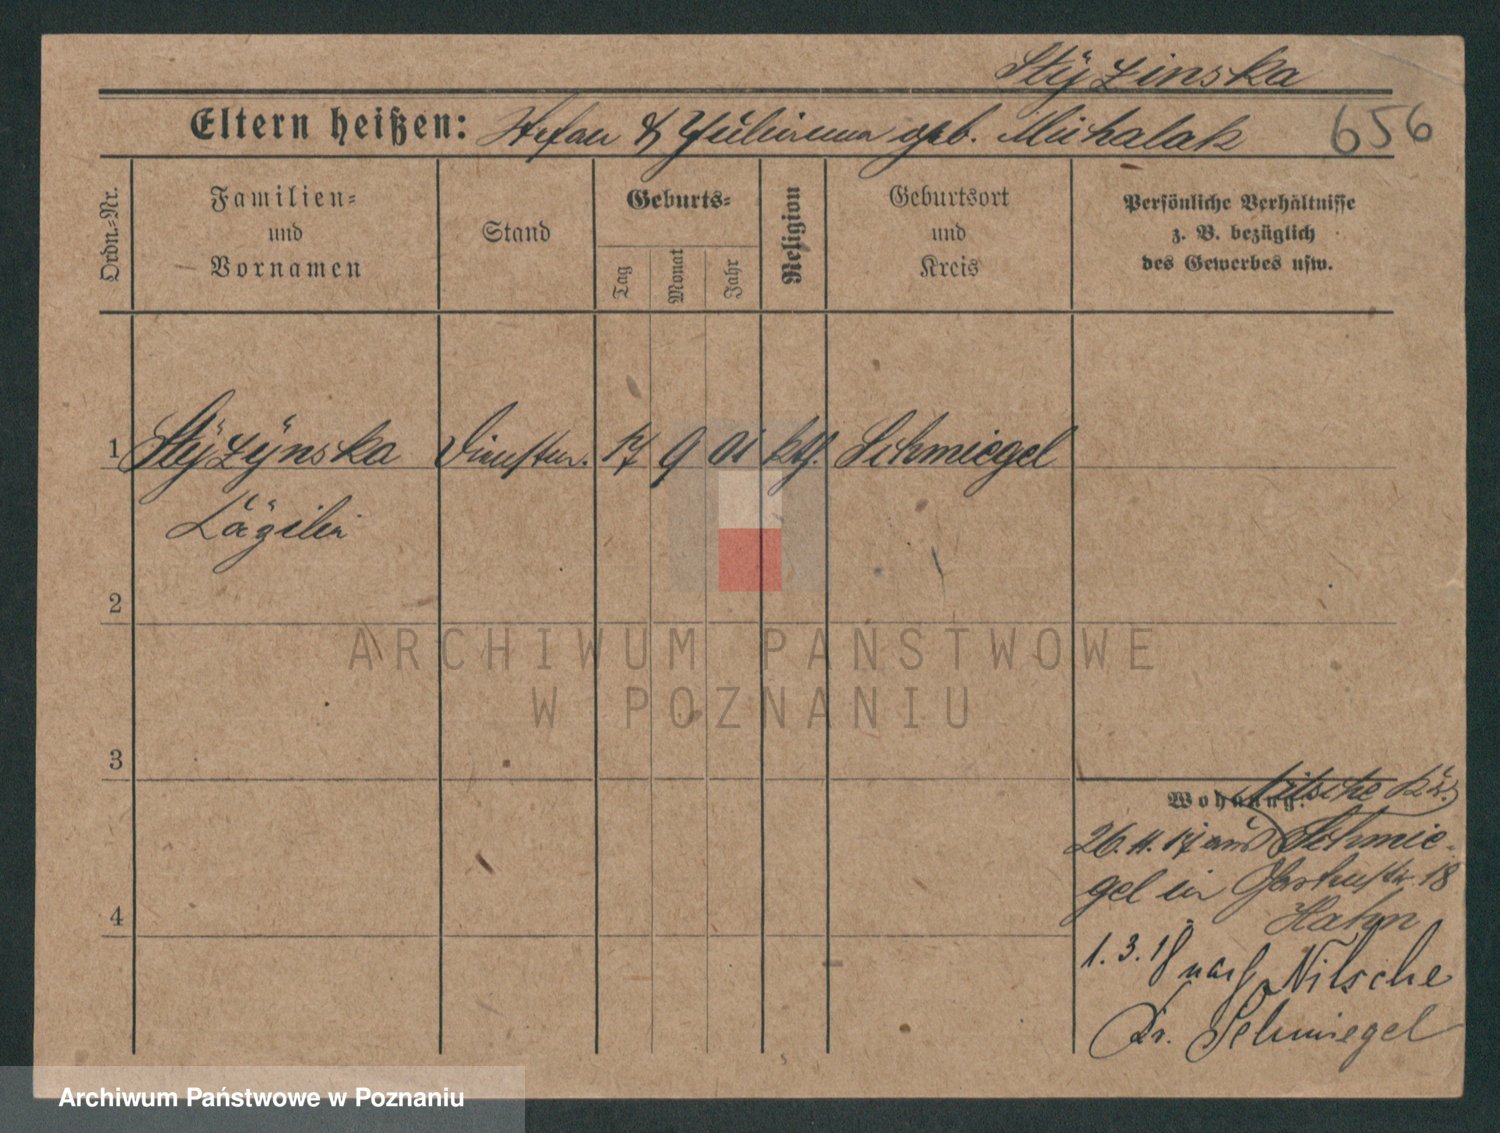 Styzinska
Eltern heißen: Stefan & Julianna geb. Michalak 656
Ordn.-Nr.
Familien-
und
Vornamen
Stand
Geburts-
Tag
Monat
Jahr
Religion
Geburtsort
und
Kreis
Persönliche Verhältnisse
z. B. bezüglich
des Gewerbes usw.
1 Stÿzÿnska 17 9 01 kth. Schmiegel
Cäzilia
2
ARCHIWUM PAŃSTWOWE
W POZNANIU
3
Wohnung: Nitsche Kr.
26.11.17 aus Schmie-
gel in 18
Hahn
4
1.3.18 nach Nitsche
Kr. Schmiegel
Archiwum Państwowe w Poznaniu